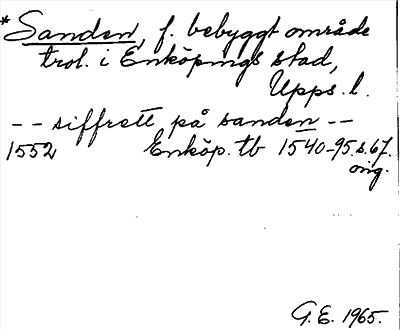 *Sanden, f. bebyggt område
trol. i Enköpings stad,
Upps. l.
-- siffrett på sanden --
1552 Enköp. tb 1540-95. s. 67.
orig.
G. E. 1965.